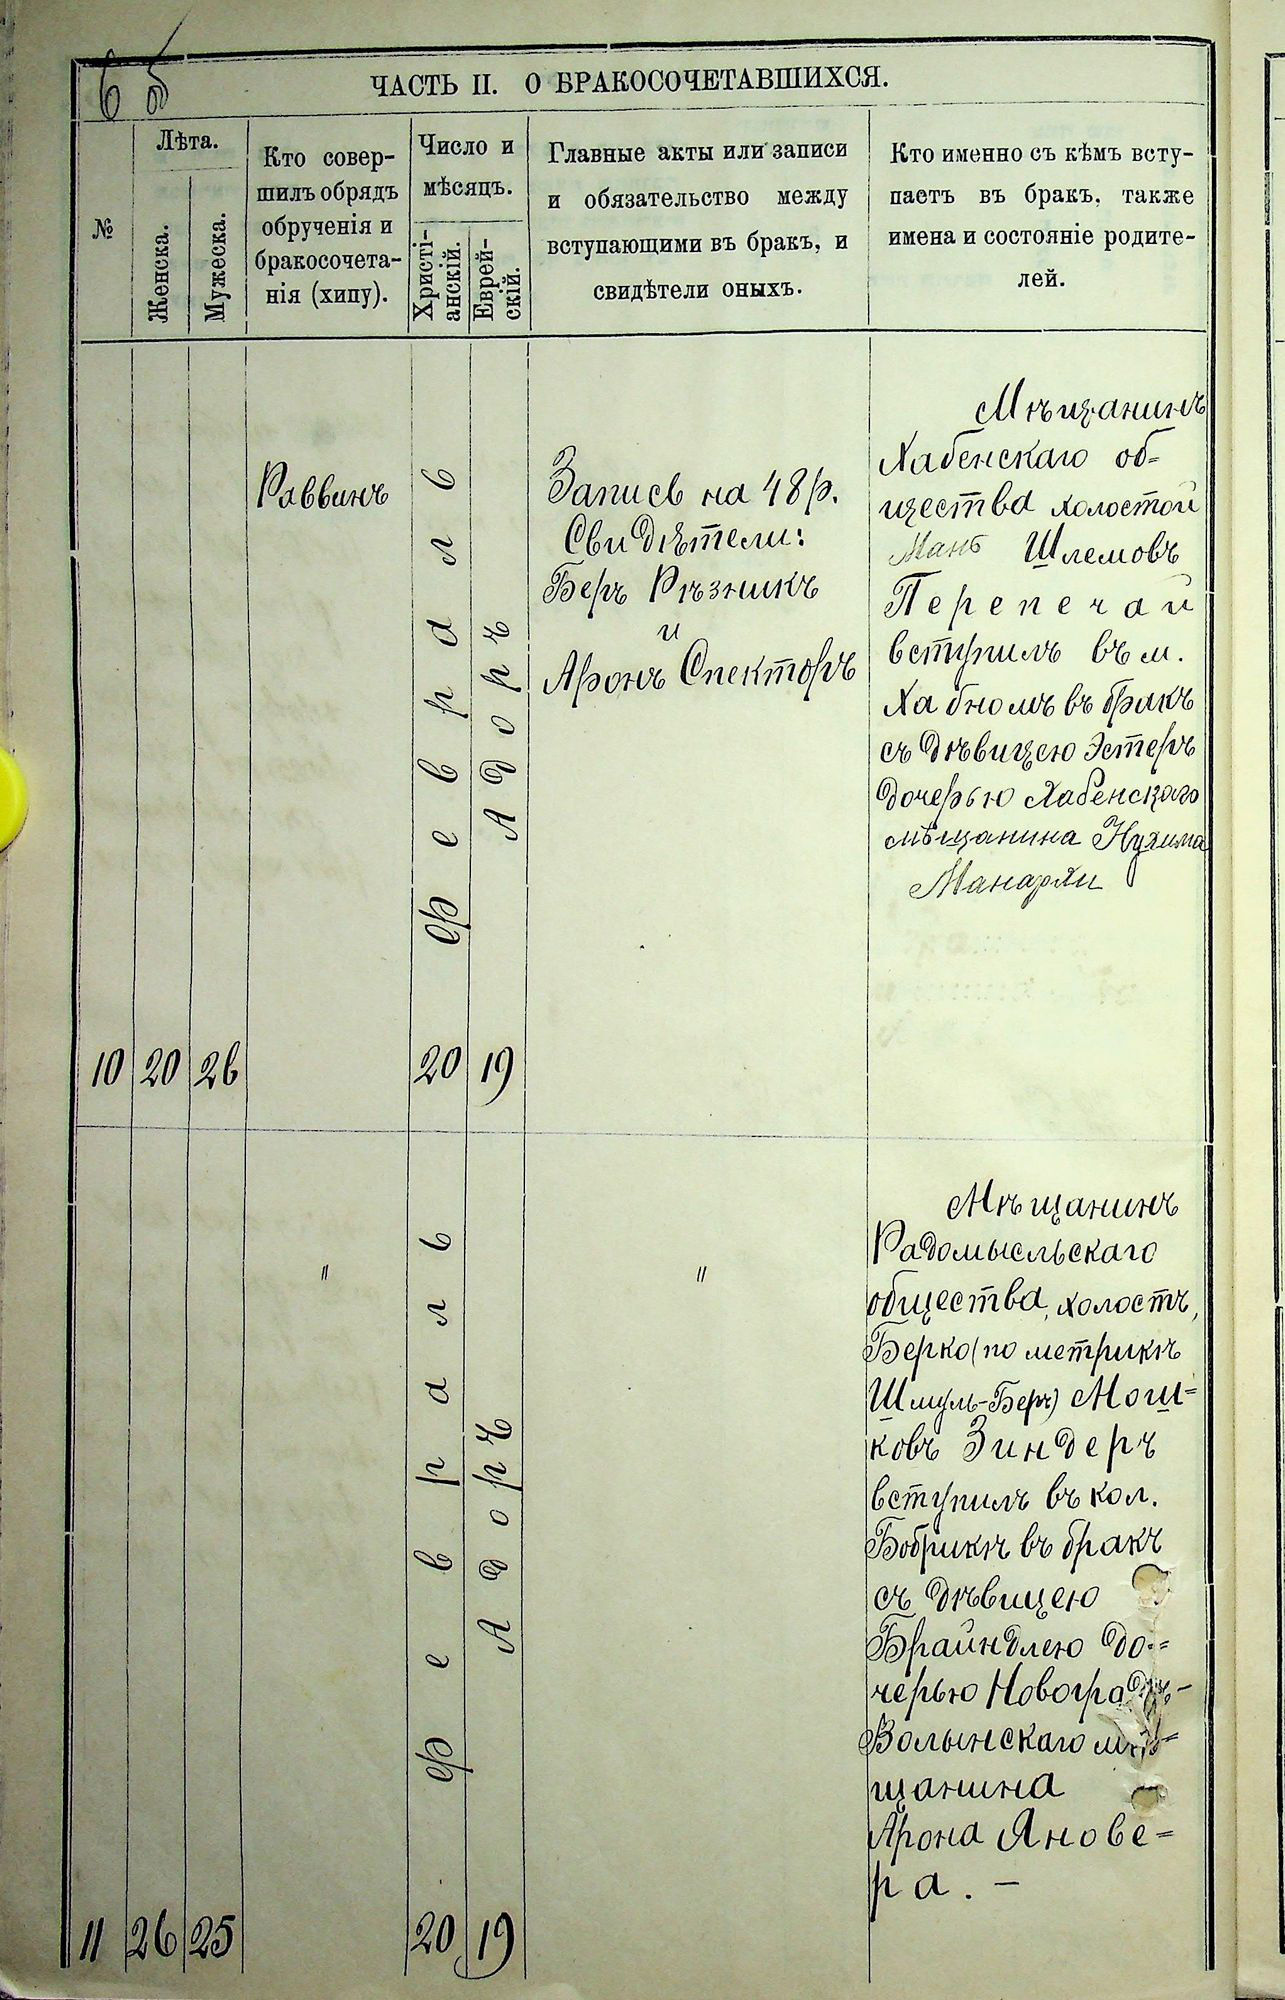 6 об
ЧАСТЬ II. О БРАКОСОЧЕТАВШИХСЯ.
№
Лѣта.
Женска.
Мужеска.
Кто совер-
шилъ обрядъ
обрученія и
бракосочета-
нія (хипу).
Число и
мѣсяцъ.
Христі-
анскій.
Еврей-
скій.
Главные акты или записи
и обязательство между
вступающими въ бракъ, и
свидѣтели оныхъ.
Кто именно съ кѣмъ всту-
паетъ въ бракъ, также
имена и состояніе родите-
лей.
10
20
26
Раввинъ
Февраль
20
Адоръ
19
Запись на 48 р.
Свидѣтели:
Беръ Рѣзникъ
и
Аронъ Спекторъ
Мѣщанинъ
Хабенскаго об=
щества холостой
Шлемовъ
Перепечай
вступилъ въ м.
Хабномъ въ бракъ
съ дѣвицею Эстеръ
дочерью Хабенскаго
мѣщанина Нухима
11
26
25
"
Февраль
20
Адоръ
19
"
Мѣщанинъ
Радомысльскаго
общества, холостъ,
Берко (по метрикѣ
Шмуль-Беръ) Мош=
ковъ Зиндеръ
вступилъ въ кол.
Бобрикѣ въ бракъ
съ дѣвицею
Брайндлею до=
черью Новоградъ-
Волынскаго мѣ=
щанина
Арона Янове=
ра. —